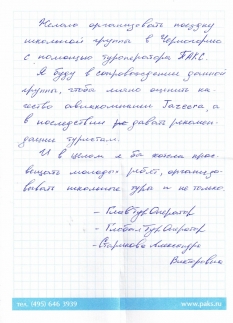 Желаю организовать поездку
школьной группы в Черногорию
с помощью туроператора ПАКС.
Я буду в сопровождении данной
группы, чтобы лично оценить ка-
чество авиакомпании и
в последствии давать рекомен-
дации туристам.
И в целом я бы хотела прос-
вещать молодых ребят, организо-
вывать школьные туры и не только.
- ГлавТурОператор
- ГлобалТурОператор
- Старикова Александра
Викторовна
тел. (495) 646 3939
www.paks.ru